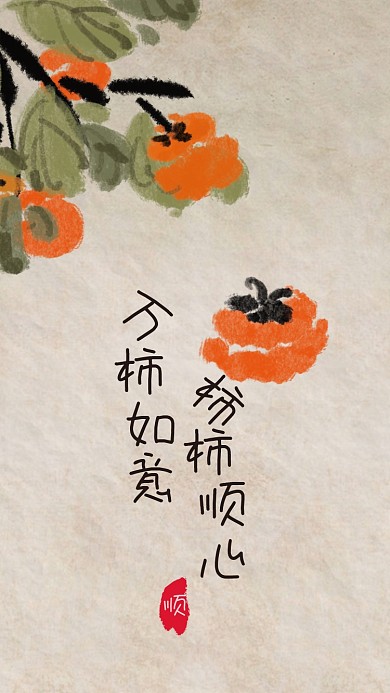 柿柿顺心
万柿如意
顺